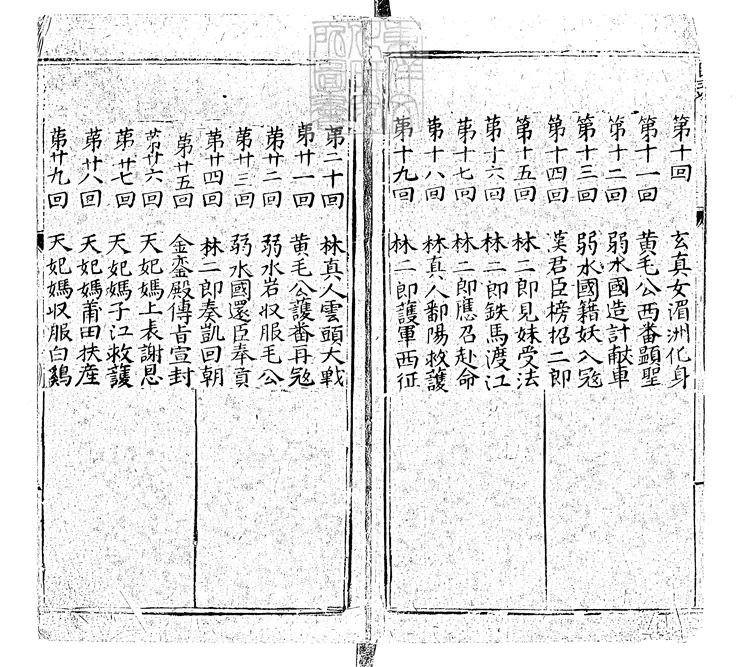 第十回　玄真女湄洲化身
第十一回　黄毛公西番顕聖
第十二回　弱水國造計献車
第十三回　弱水國籍妖入冦
第十四回　漢君臣榜招二郎
第十五回　林二郎見妹受法
第十六回　林二郎鉄馬渡江
第十七回　林二郎應召赴命
第十八回　林真人鄱陽救護
第十九回　林二郎護軍西征
第二十回　林真人雲頭大戰
第廿一回　黄毛公護番再冦
第廿二回　弱水岩収服毛公
第廿三回　弱水國還臣奉貢
第廿四回　林二郎奏凱回朝
第廿五回　金鑾殿傳旨宣封
第廿六回　天妃媽上表謝恩
第廿七回　天妃媽子江救護
第廿八回　天妃媽莆田扶産
第廿九回　天妃媽収服白鷄